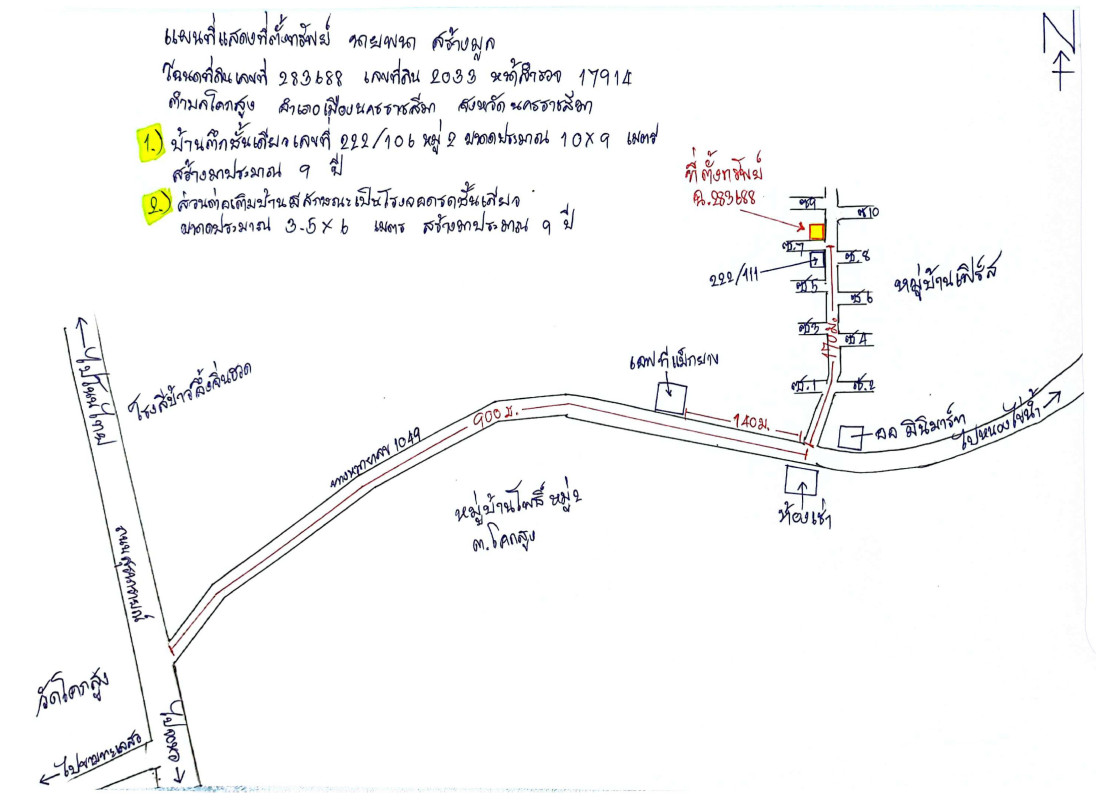 แผนที่แสดงที่ตั้งทรัพย์ นายพนา สร้างมูล
โฉนดที่ดินเลขที่ 283688 เลขที่ดิน 2033 หน้าสำรวจ 17914
ตำบลโคกสูง อำเภอเมืองนครราชสีมา จังหวัดนครราชสีมา
1.) บ้านตึกชั้นเดียวเลขที่ 222/106 หมู่ 2 ขนาดประมาณ 10×9 เมตร
สร้างมาประมาณ 9 ปี
2.) ส่วนต่อเติมบ้านมีลักษณะเป็นโรงจอดรถชั้นเดียว
ขนาดประมาณ 3.5×6 เมตร สร้างมาประมาณ 9 ปี
N
ที่ตั้งทรัพย์
ฉ.283688
ซ9
ซ10
ซ.7
ซ.8
222/111
ซ5
ซ6
หมู่บ้านเฟิร์ส
ซ3
ซ4
170ม.
ซ.1
ซ.2
ไปโนนไทย
โรงสีข้าวลิ้งจั่นฮวด
เลฟที่แม็กยาง
140ม.
900ม.
ทางหมายเลข 1049
ออ มินิมาร์ท
ไปหนองไข่น้ำ
ห้องเช่า
หมู่บ้านโพธิ์ หมู่2
ต.โคกสูง
ถนนสุรนารายณ์
วัดโคกสูง
ไปขามทะเลสอ
ไปจอหอ